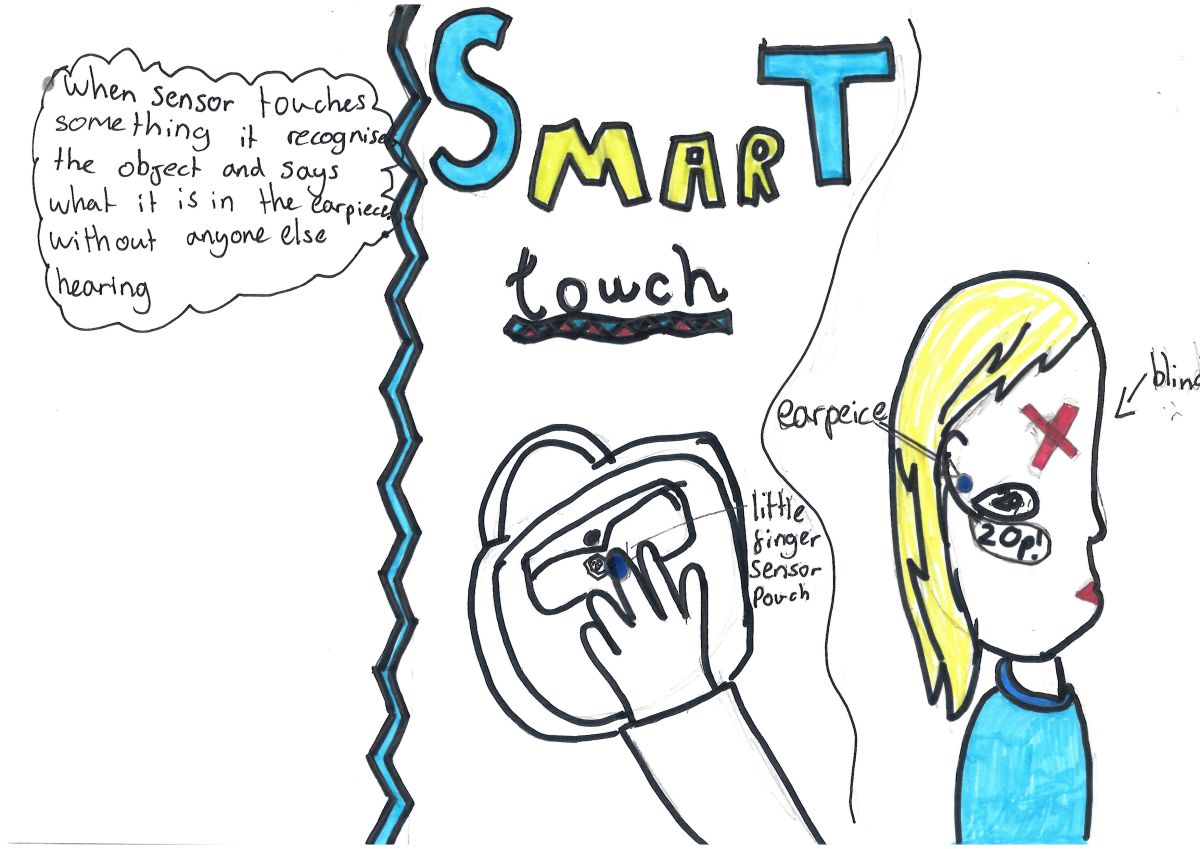 When sensor touches
something it recognise
the object and says
what it is in the earpiece
without anyone else
hearing
SMART
touch
little
finger
sensor
pouch
earpeice
20p!
blind